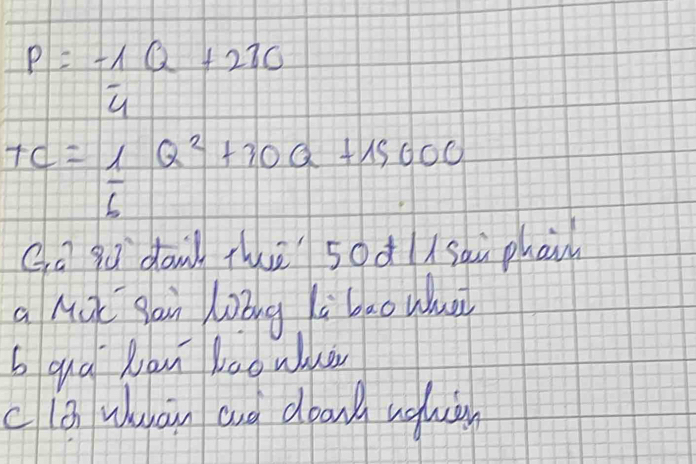 P = -1/4 Q + 280
TC = 1/6 Q² + 30Q + 15000
Giả sử đánh thuế 50đ/1 sản phẩm
a Mức sản lượng là bao nhiêu
b giá bán bao nhiêu
c lợi nhuận của doanh nghiệp